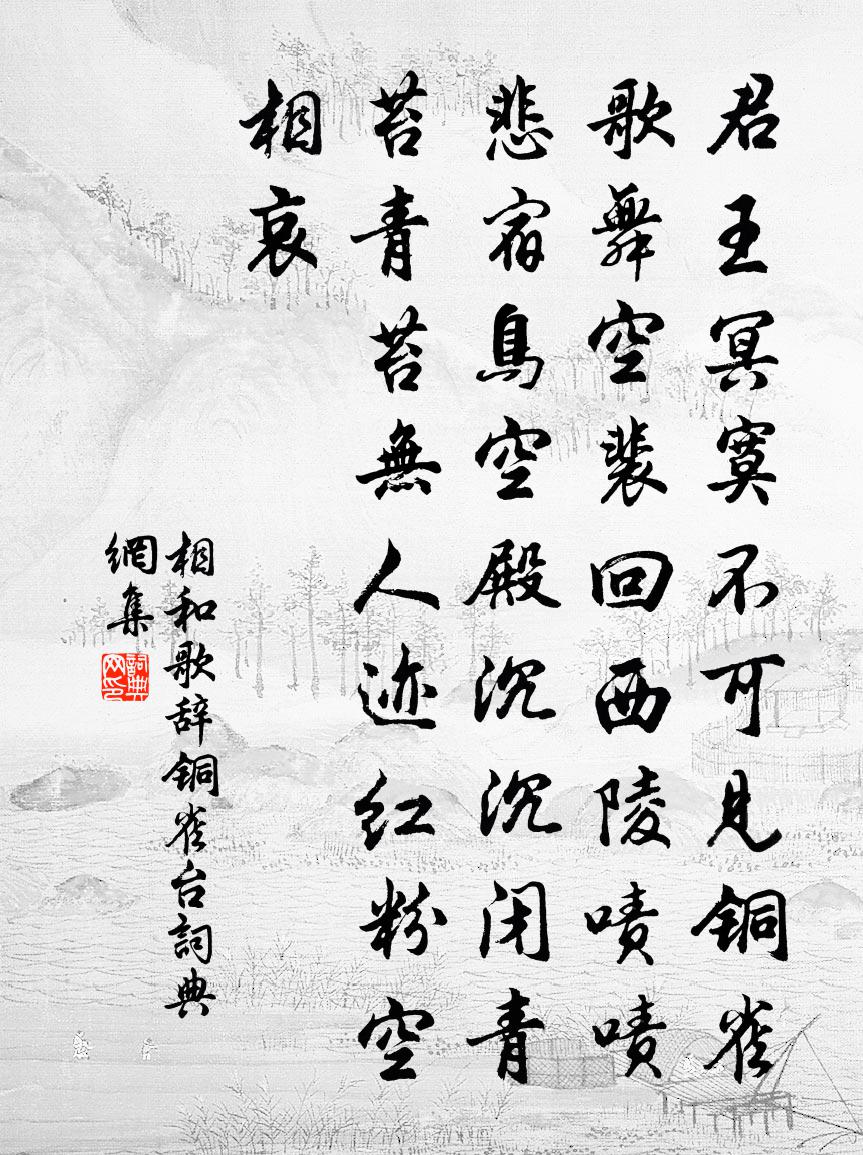 君王冥寞不可见铜雀
歌舞空裴回西陵啧啧
悲宿鳥空殿沉沉闭青
苔青苔無人迹红粉空
相哀
相和歌辞铜雀台詞典
網集
詞典
网印